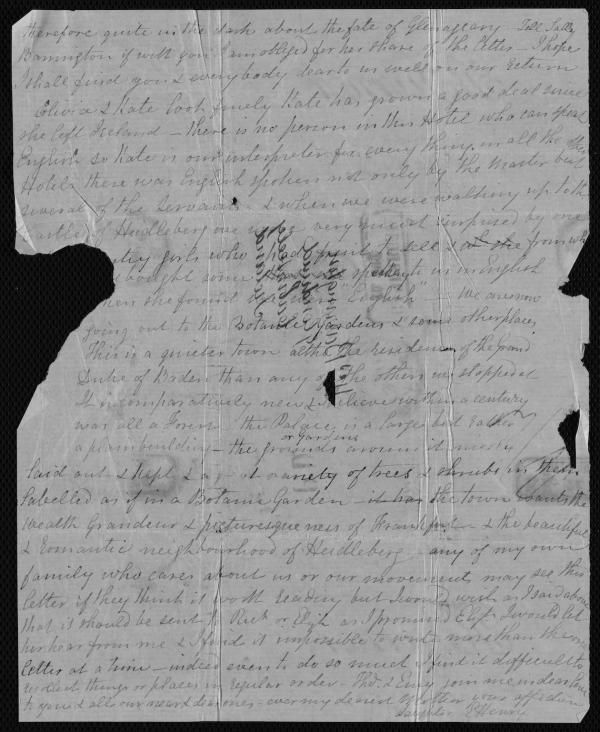 therefore quite in the dark about the fate of Glenageary - Tell Sally
Barrington if with you I am obliged for her share of the letter - I hope
I shall find you & everybody dear to us well on our return
Olivia & Kate look finely Kate has grown a good deal since
she left Ireland - there is no person in this Hotel who can speak
English so Kate is our interpreter for every thing in all the other
Hotels there was English spoken not only by the Master but
several of the Servants - & when we were walking up to the
Castle of Heidleberg we were very much surprised by one
girls who had fruit to sell & from whom
bought some speaking to us in English
when she found we were "English" - we are now
going out to the Botanic Gardens & some other places
This is a quieter town altho the residence of the Grand
Duke of Baden than any of the others we stopped at
It is comparatively new & I believe within a century
was all a Forest the Palace is a large but rather
a plain building - the grounds or gardens around it nicely
laid out & kept & a great variety of trees & shrubs in them
labelled as if in a Botanic Garden - the town wants the
wealth Grandeur & picturesqueness of Frankfort - & the beautiful
& Romantic neighbourhood of Heidleberg - any of my own
family who cares about us or our movements may see this
letter if they think it worth reading but I would wish as I said above
that it should be sent to Rich or Eliza as I promised Eliza I would let
her hear from me & I find it impossible to write more than the one
letter at a time - indeed even to do so much I find it difficult to
recollect things or places in regular order - Thos & Emy join me in dear love
to you & all our near & dear ones - ever my dearest Mother your affection
daughter E Henry